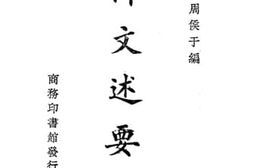 周侯于編
文述要
商務印書館發行